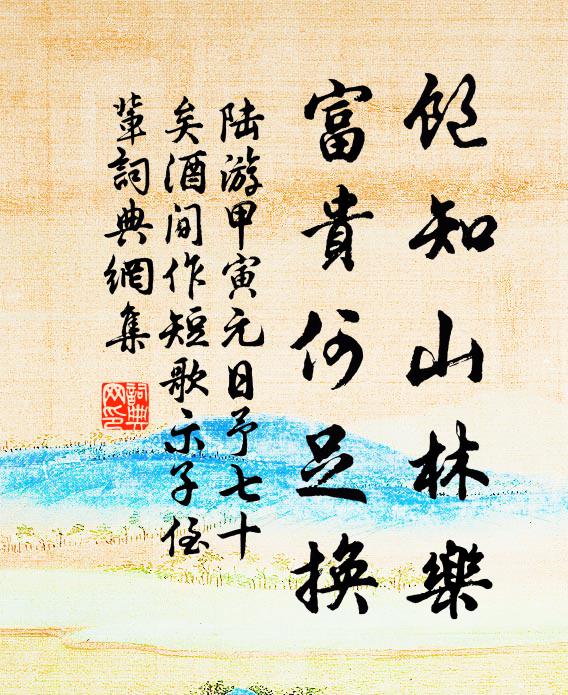 飽知山林樂
富貴何足換
陸游甲寅元日予七十
矣酒间作短歌示子侄
輩詞典網集
詞典
网印